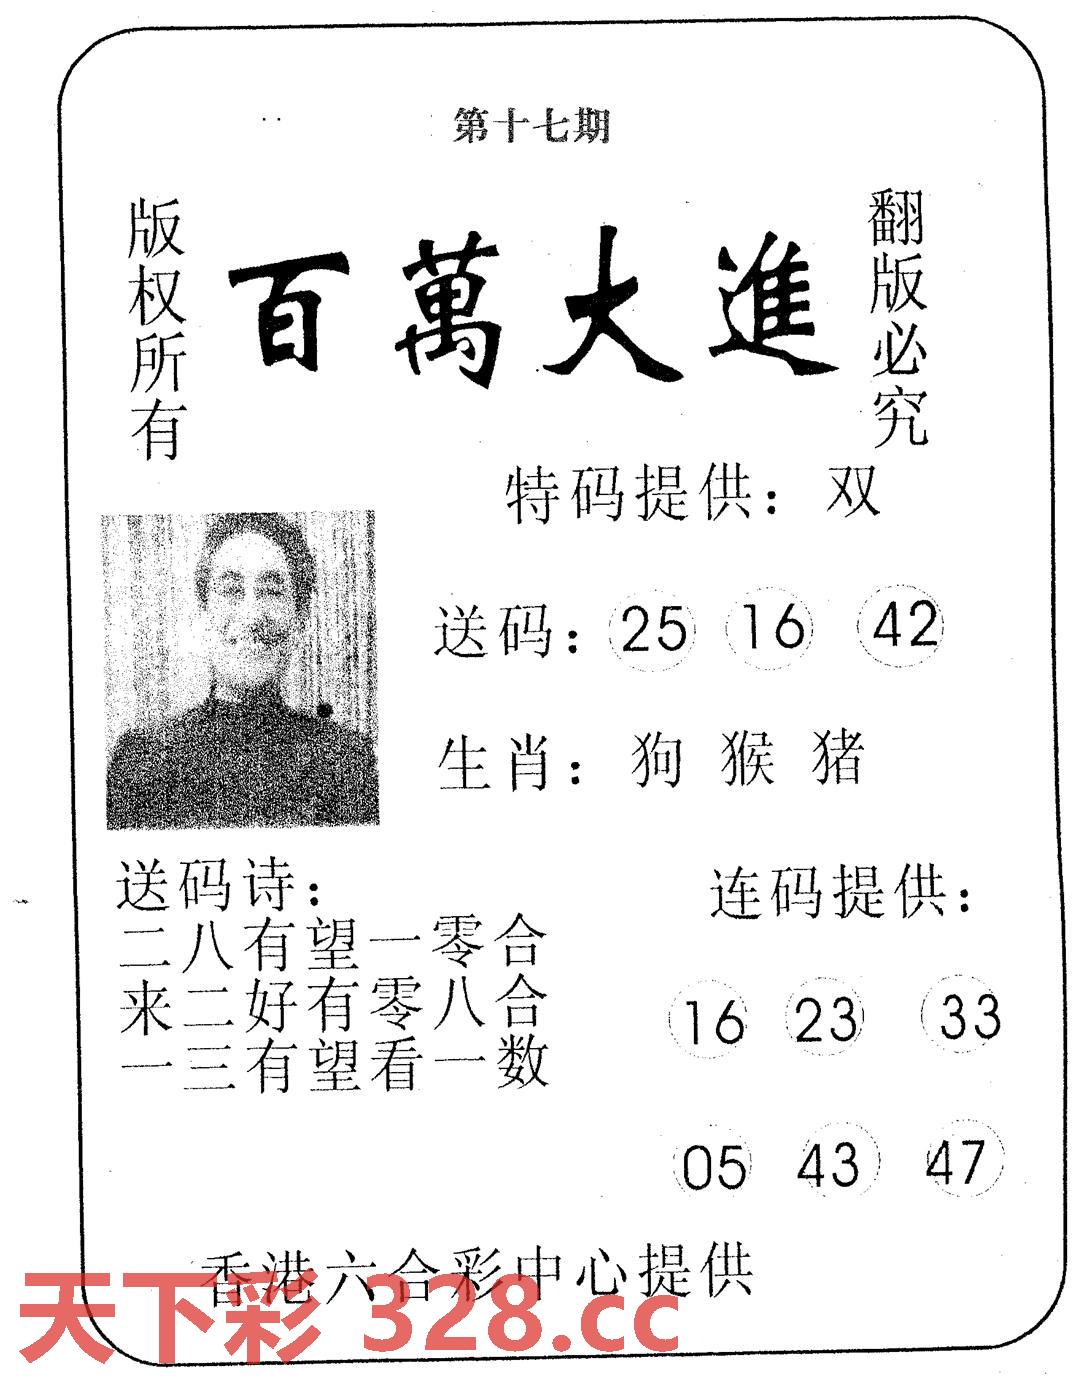 第十七期
版权所有
百萬大進
翻版必究
特码提供：双
送码：25 16 42
生肖：狗 猴 猪
送码诗：
二八有望一零合
来二好有零八合
一三有望看一数
连码提供：
16 23 33
05 43 47
香港六合彩中心提供
天下彩 328.cc